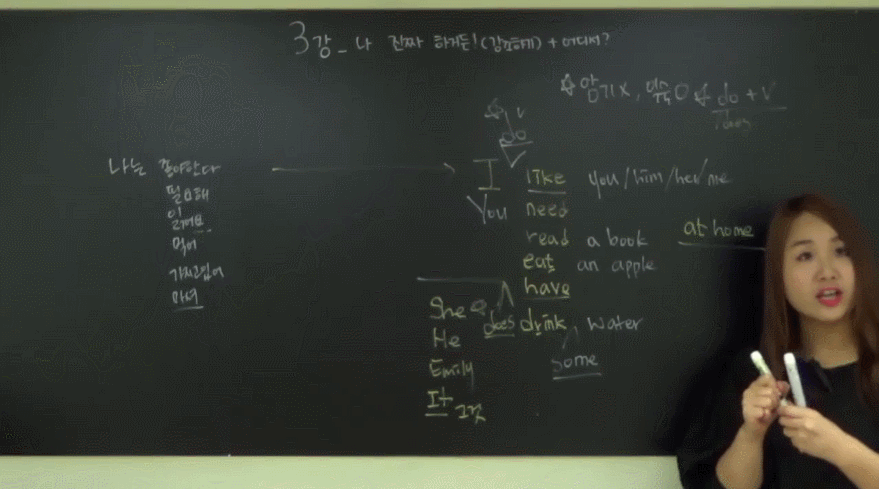 3강_나 진짜 하거든!(강조하기) + 어디서?
암기X, 이해O ☆ do + V
does
V
do
나는 좋아한다
필요해
읽어요
먹어
가지고있어
마셔
I like you/him/her/me
You need
read a book at home
eat an apple
have
She does drink water
He some
Emily
It 그것